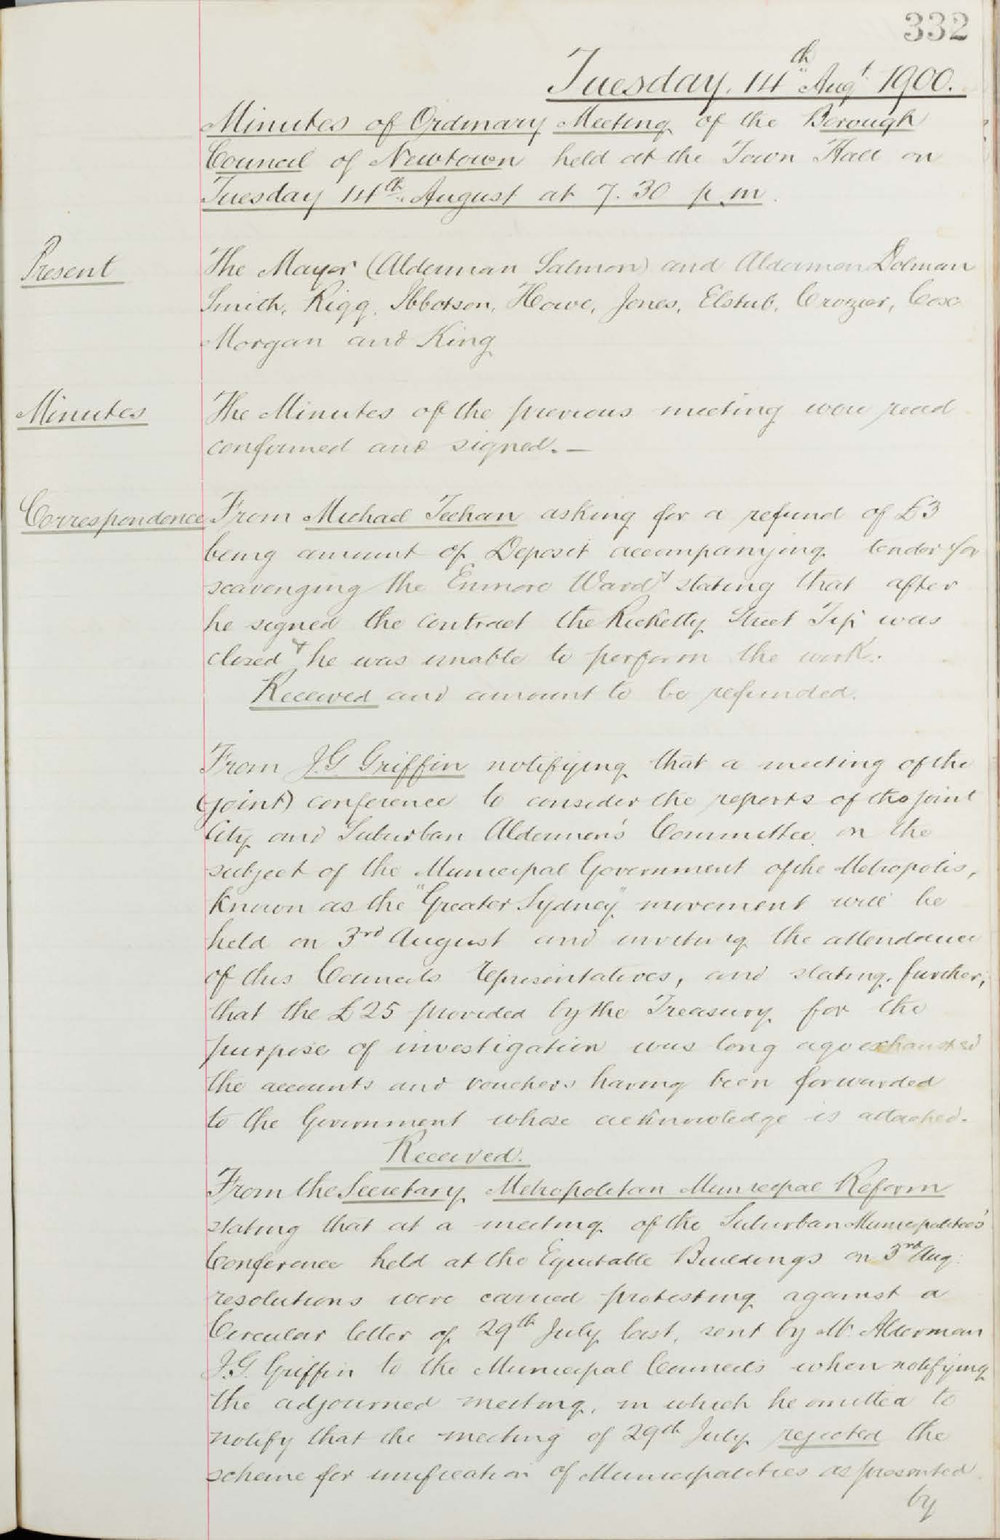 332
Tuesday, 14th Augt 1900.
Minutes of Ordinary Meeting of the Borough
Council of Newtown held at the Town Hall on
Tuesday 14th August at 7.30 p.m.
Present
The Mayor (Alderman Salmon) and Aldermen Dolman
Smith, Rigg, Ibbotson, Howe, Jones, Elstub, Crozier, Cox
Morgan and King
Minutes
The Minutes of the previous meeting were read
confirmed and signed. —
Correspondence
From Michael Teehan asking for a refund of £3
being amount of Deposit accompanying tender for
scavenging the Enmore Ward & stating that after
he signed the contract the Ricketty Street Tip was
closed & he was unable to perform the work.
Received and amount to be refunded.
From J.G Griffin notifying that a meeting of the
(joint) conference to consider the reports of the joint
City and Suburban Aldermen's Committee on the
subject of the Municipal Government of the Metropolis,
known as the "Greater Sydney" movement will be
held on 3rd August and inviting the attendance
of this Councils representatives, and stating, further,
that the £25 provided by the Treasury for the
purpose of investigation was long ago exhausted
the accounts and vouchers having been forwarded
to the Government whose acknowledge is attached.
Received.
From the Secretary Metropolitan Municipal Reform
stating that at a meeting of the Suburban Municipalities'
Conference held at the Equitable Buildings on 3rd Aug:
resolutions were carried protesting against a
Circular letter of 29th July last, sent by Mr. Alderman
J.G. Griffin to the Municipal Councils when notifying
the adjourned meeting, in which he omitted to
notify that the meeting of 29th July rejected the
scheme for unification of Municipalities as presented
by